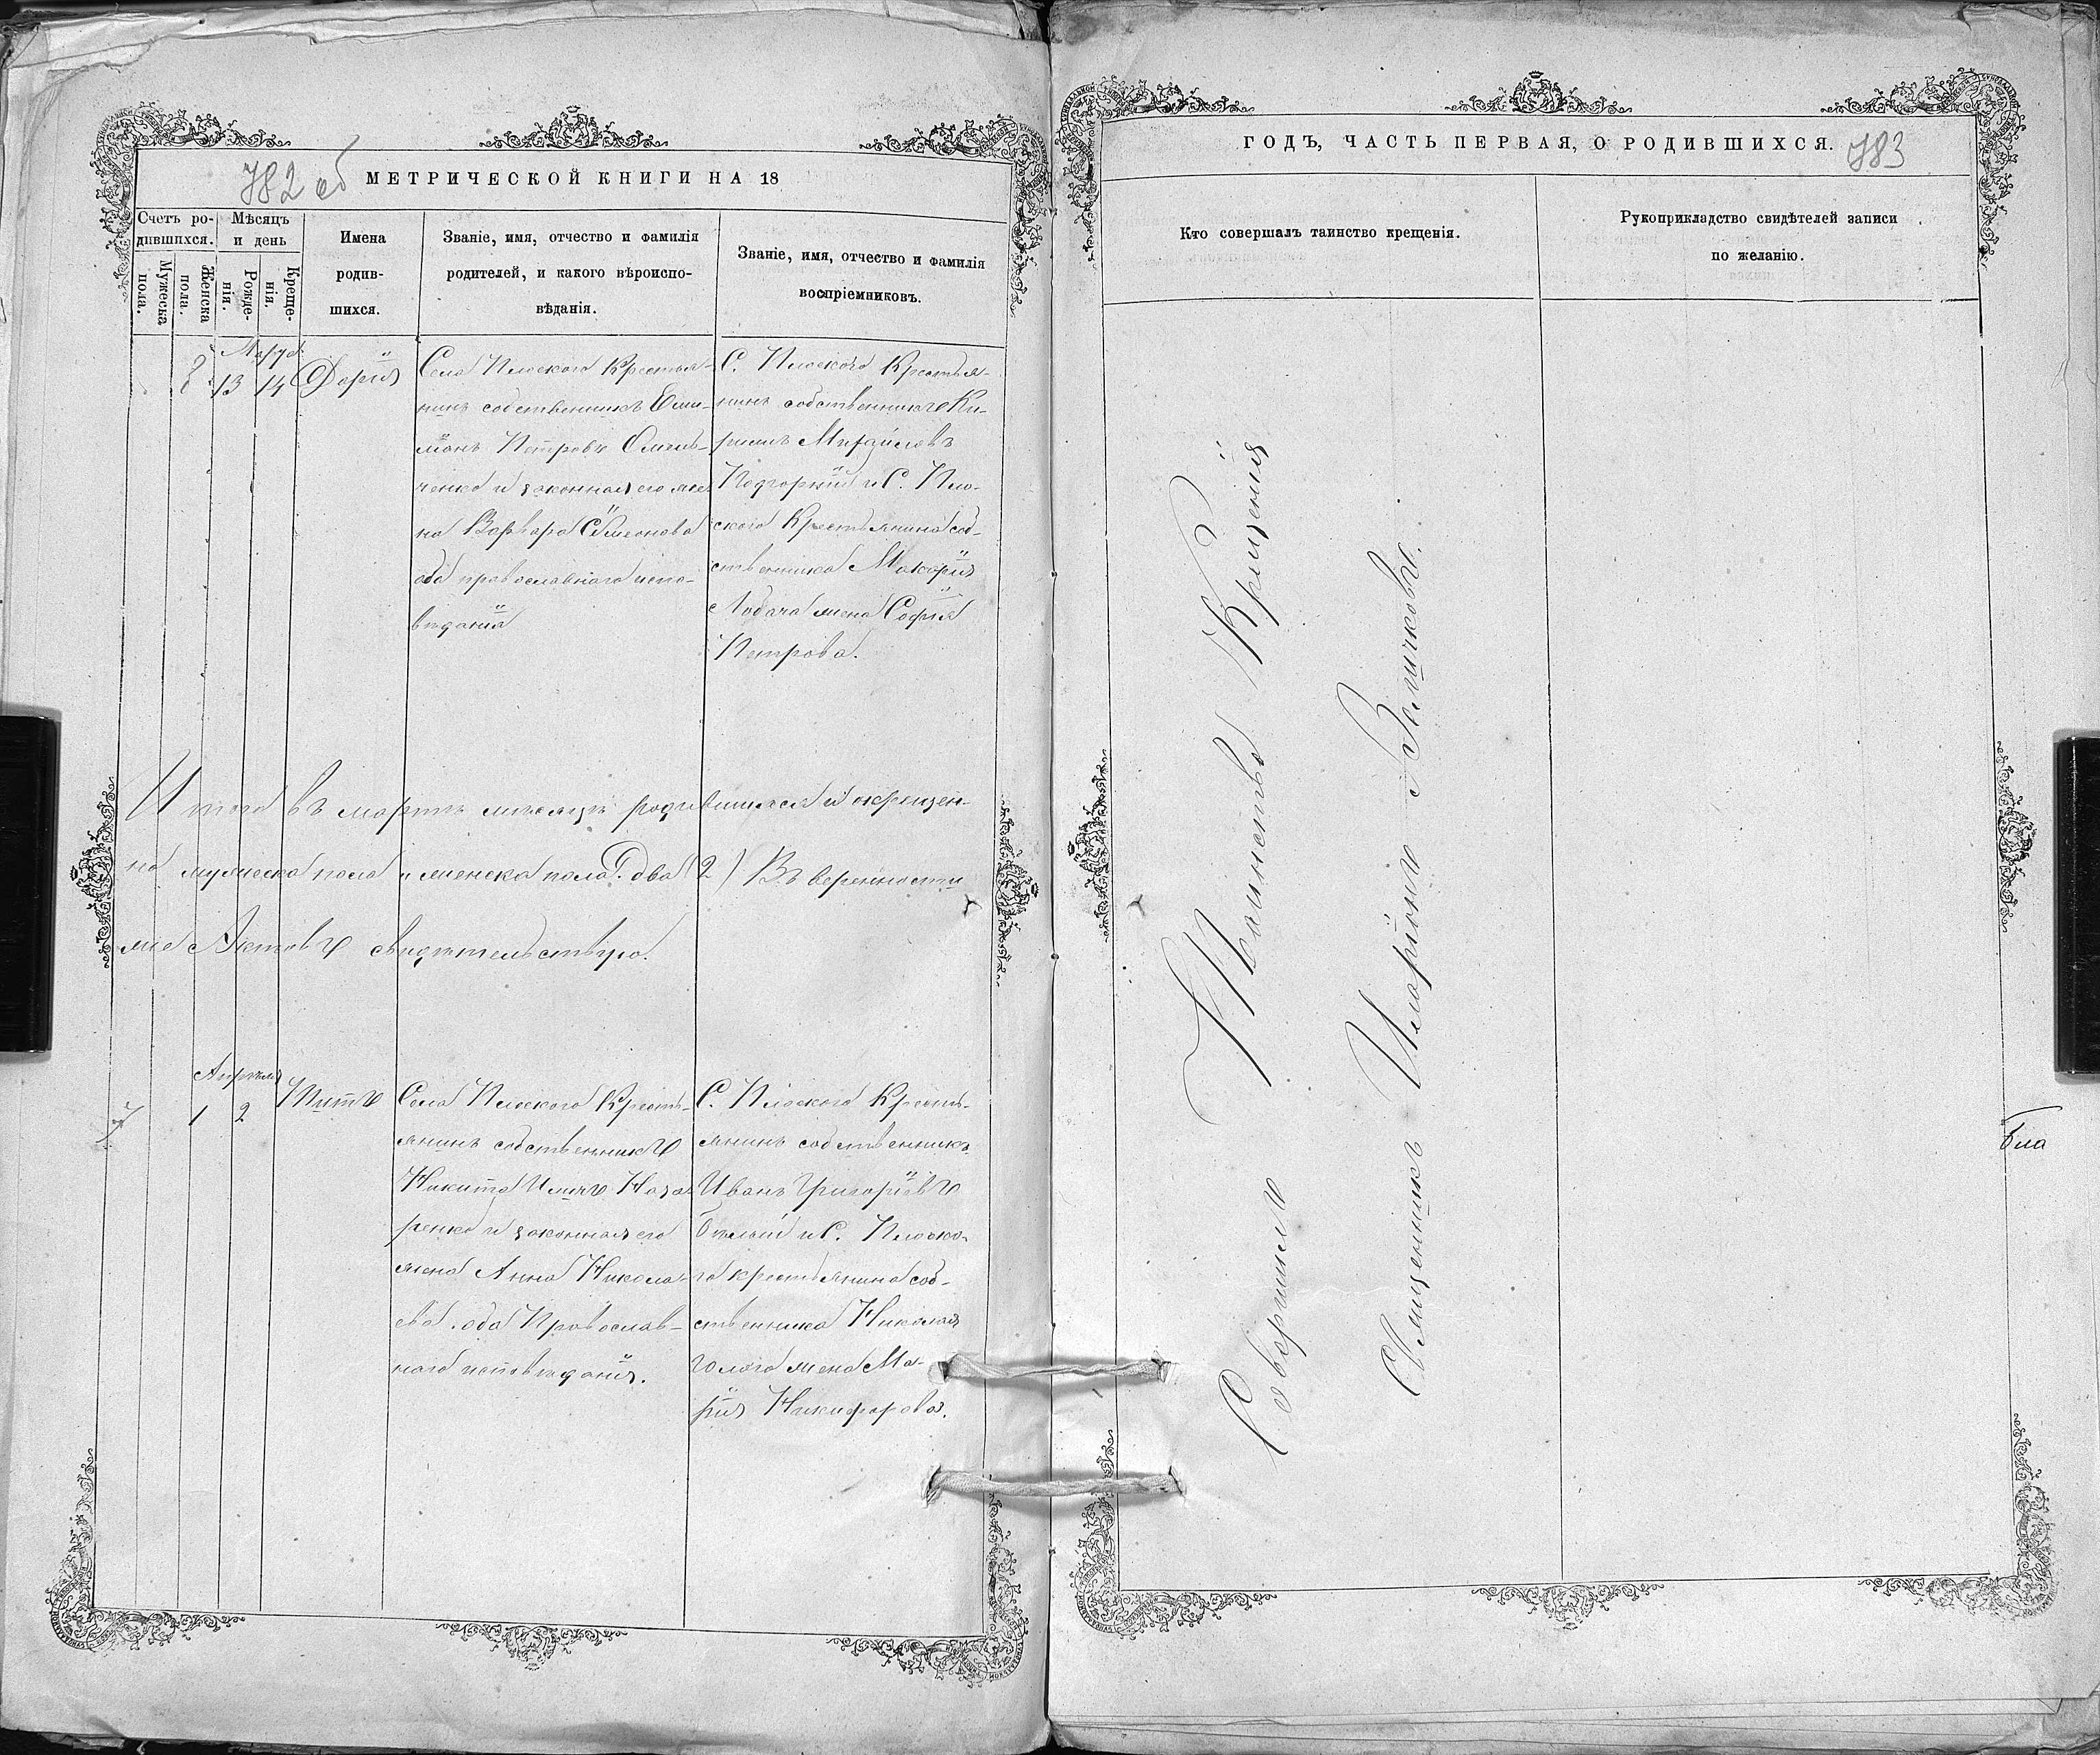 782 об
МЕТРИЧЕСКОЙ КНИГИ НА 18
Счетъ ро-
дившихся.
Мужеска
пола.
Женска
пола.
Мѣсяцъ
и день
Рожде-
нія.
Креще-
нія.
Имена
родив-
шихся.
Званіе, имя, отчество и фамилія
родителей, и какого вѣроиспо-
вѣданія.
Званіе, имя, отчество и фамилія
воспріемниковъ.
Марта
8 13 14 Дарія
Села Плоскаго Крестья-
нинъ собственникъ
Петровъ Омель-
ченко и законная его же-
на Варвара Сѵмеонова
оба православнаго испо-
вѣданія
С. Плоского Крестья-
нинъ собственникъ Ки-
рилъ Михайловъ
Подгорный и С. Пло-
ского Крестьянина соб-
ственника Макарія
жена Софія
Петрова.
Итого въ мартѣ мѣсяцѣ родившихся и окрещен-
но мужеска пола женска пола два (2) Въ верности
Актовъ свидѣтельствую.
Апрѣля
7 1 2 Титъ
Села Плоского Кресть-
янинъ собственникъ
Никита Ильинъ Наза-
ренко и законная его
жена Анна Никола-
ева оба Православ-
наго исповѣданія.
С. Плоского Кресть-
янинъ собственникъ
Иванъ Григоріевъ
Бѣлый и С. Плоско-
го крестьянина соб-
ственника Николая
Голого жена Ма-
рія Никифорова.
ГОДЪ, ЧАСТЬ ПЕРВАЯ, О РОДИВШИХСЯ.
783
Кто совершалъ таинство крещенія.
Рукоприкладство свидѣтелей записи
по желанію.
Совершилъ Таинство Крещенія
Священникъ Иларіонъ Величковъ.